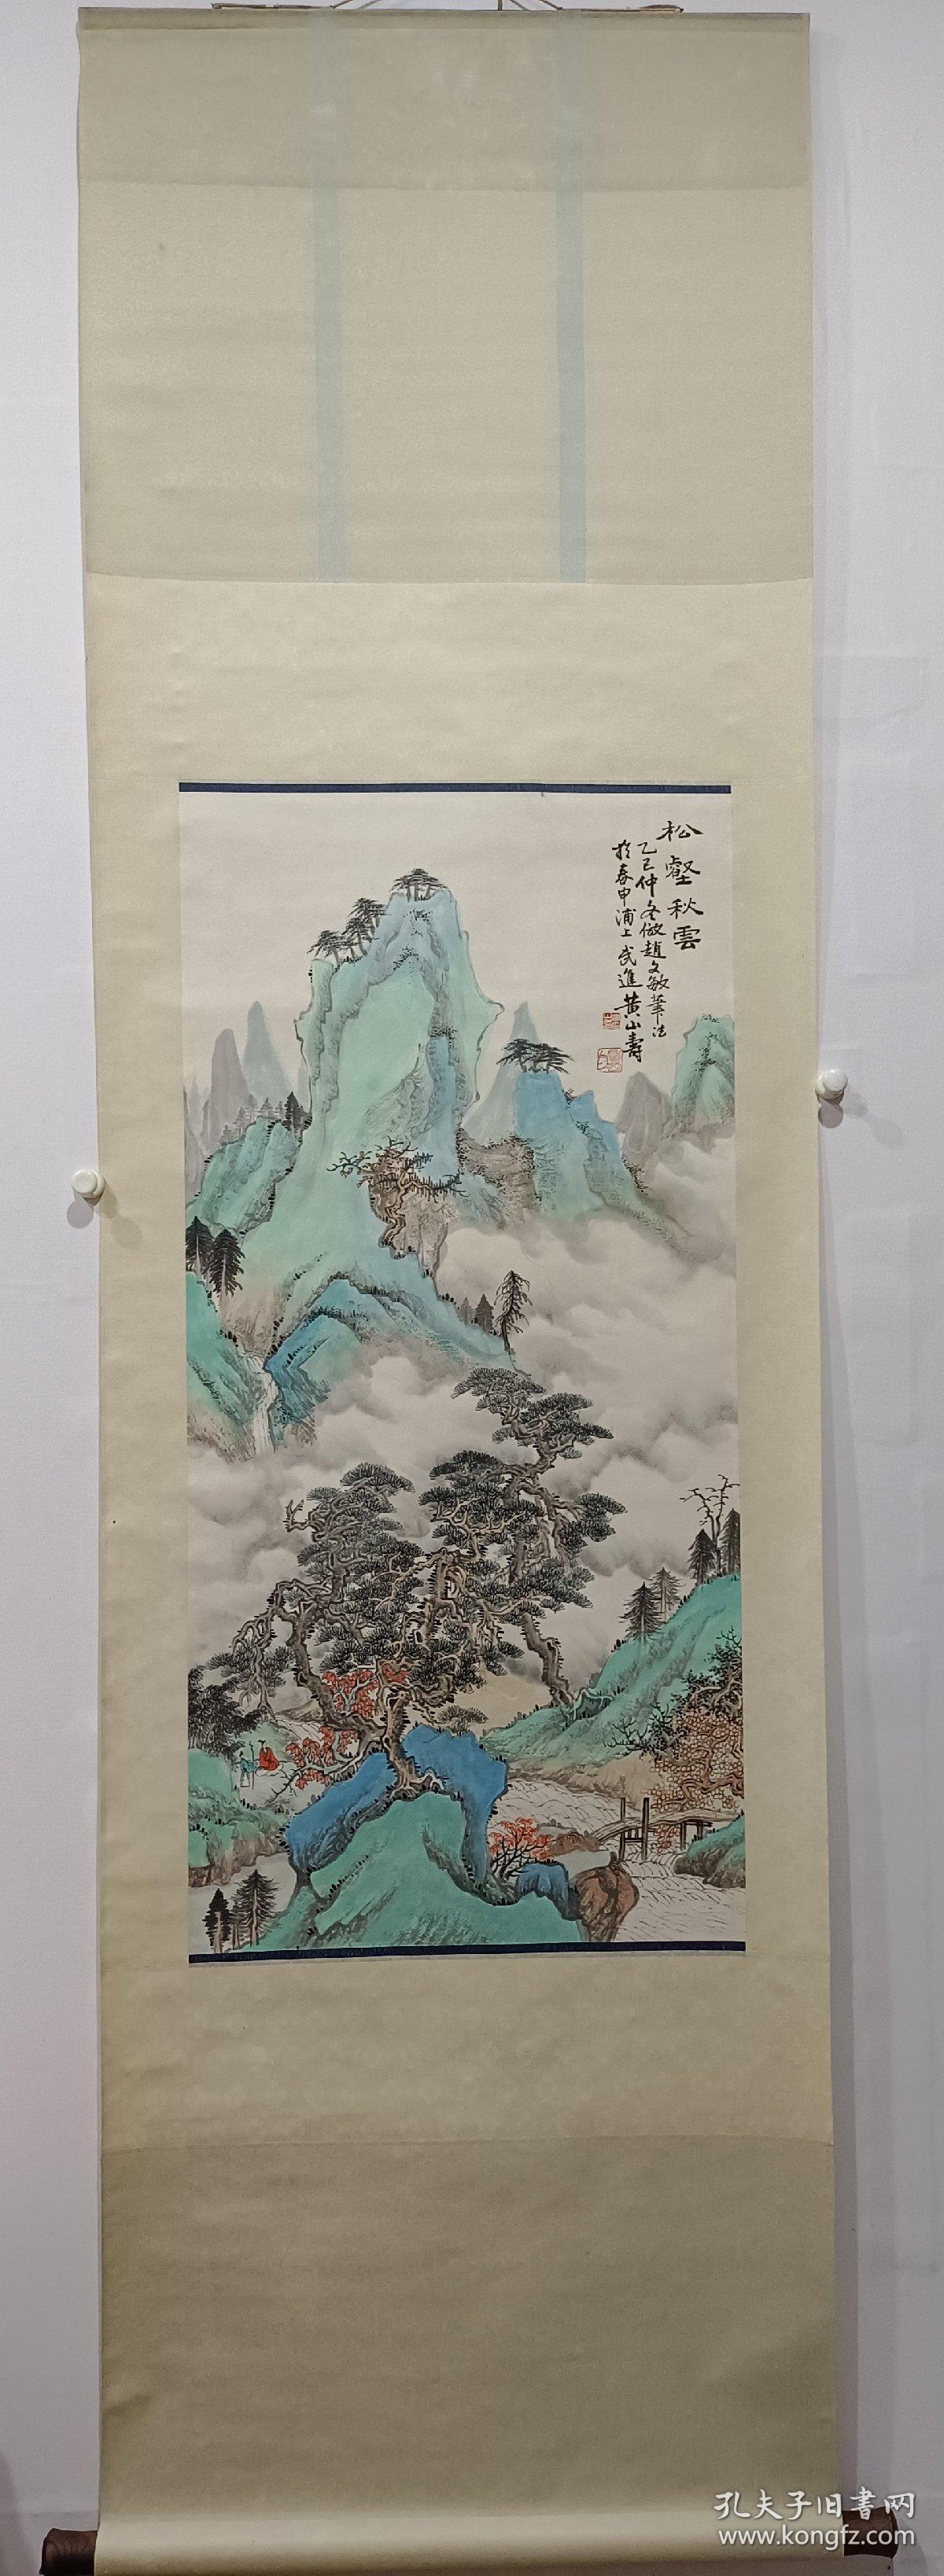 松壑秋雲
乙巳仲冬倣趙文敏筆法
於春申浦上武進黃山壽
孔夫子旧書网
www.kongfz.com